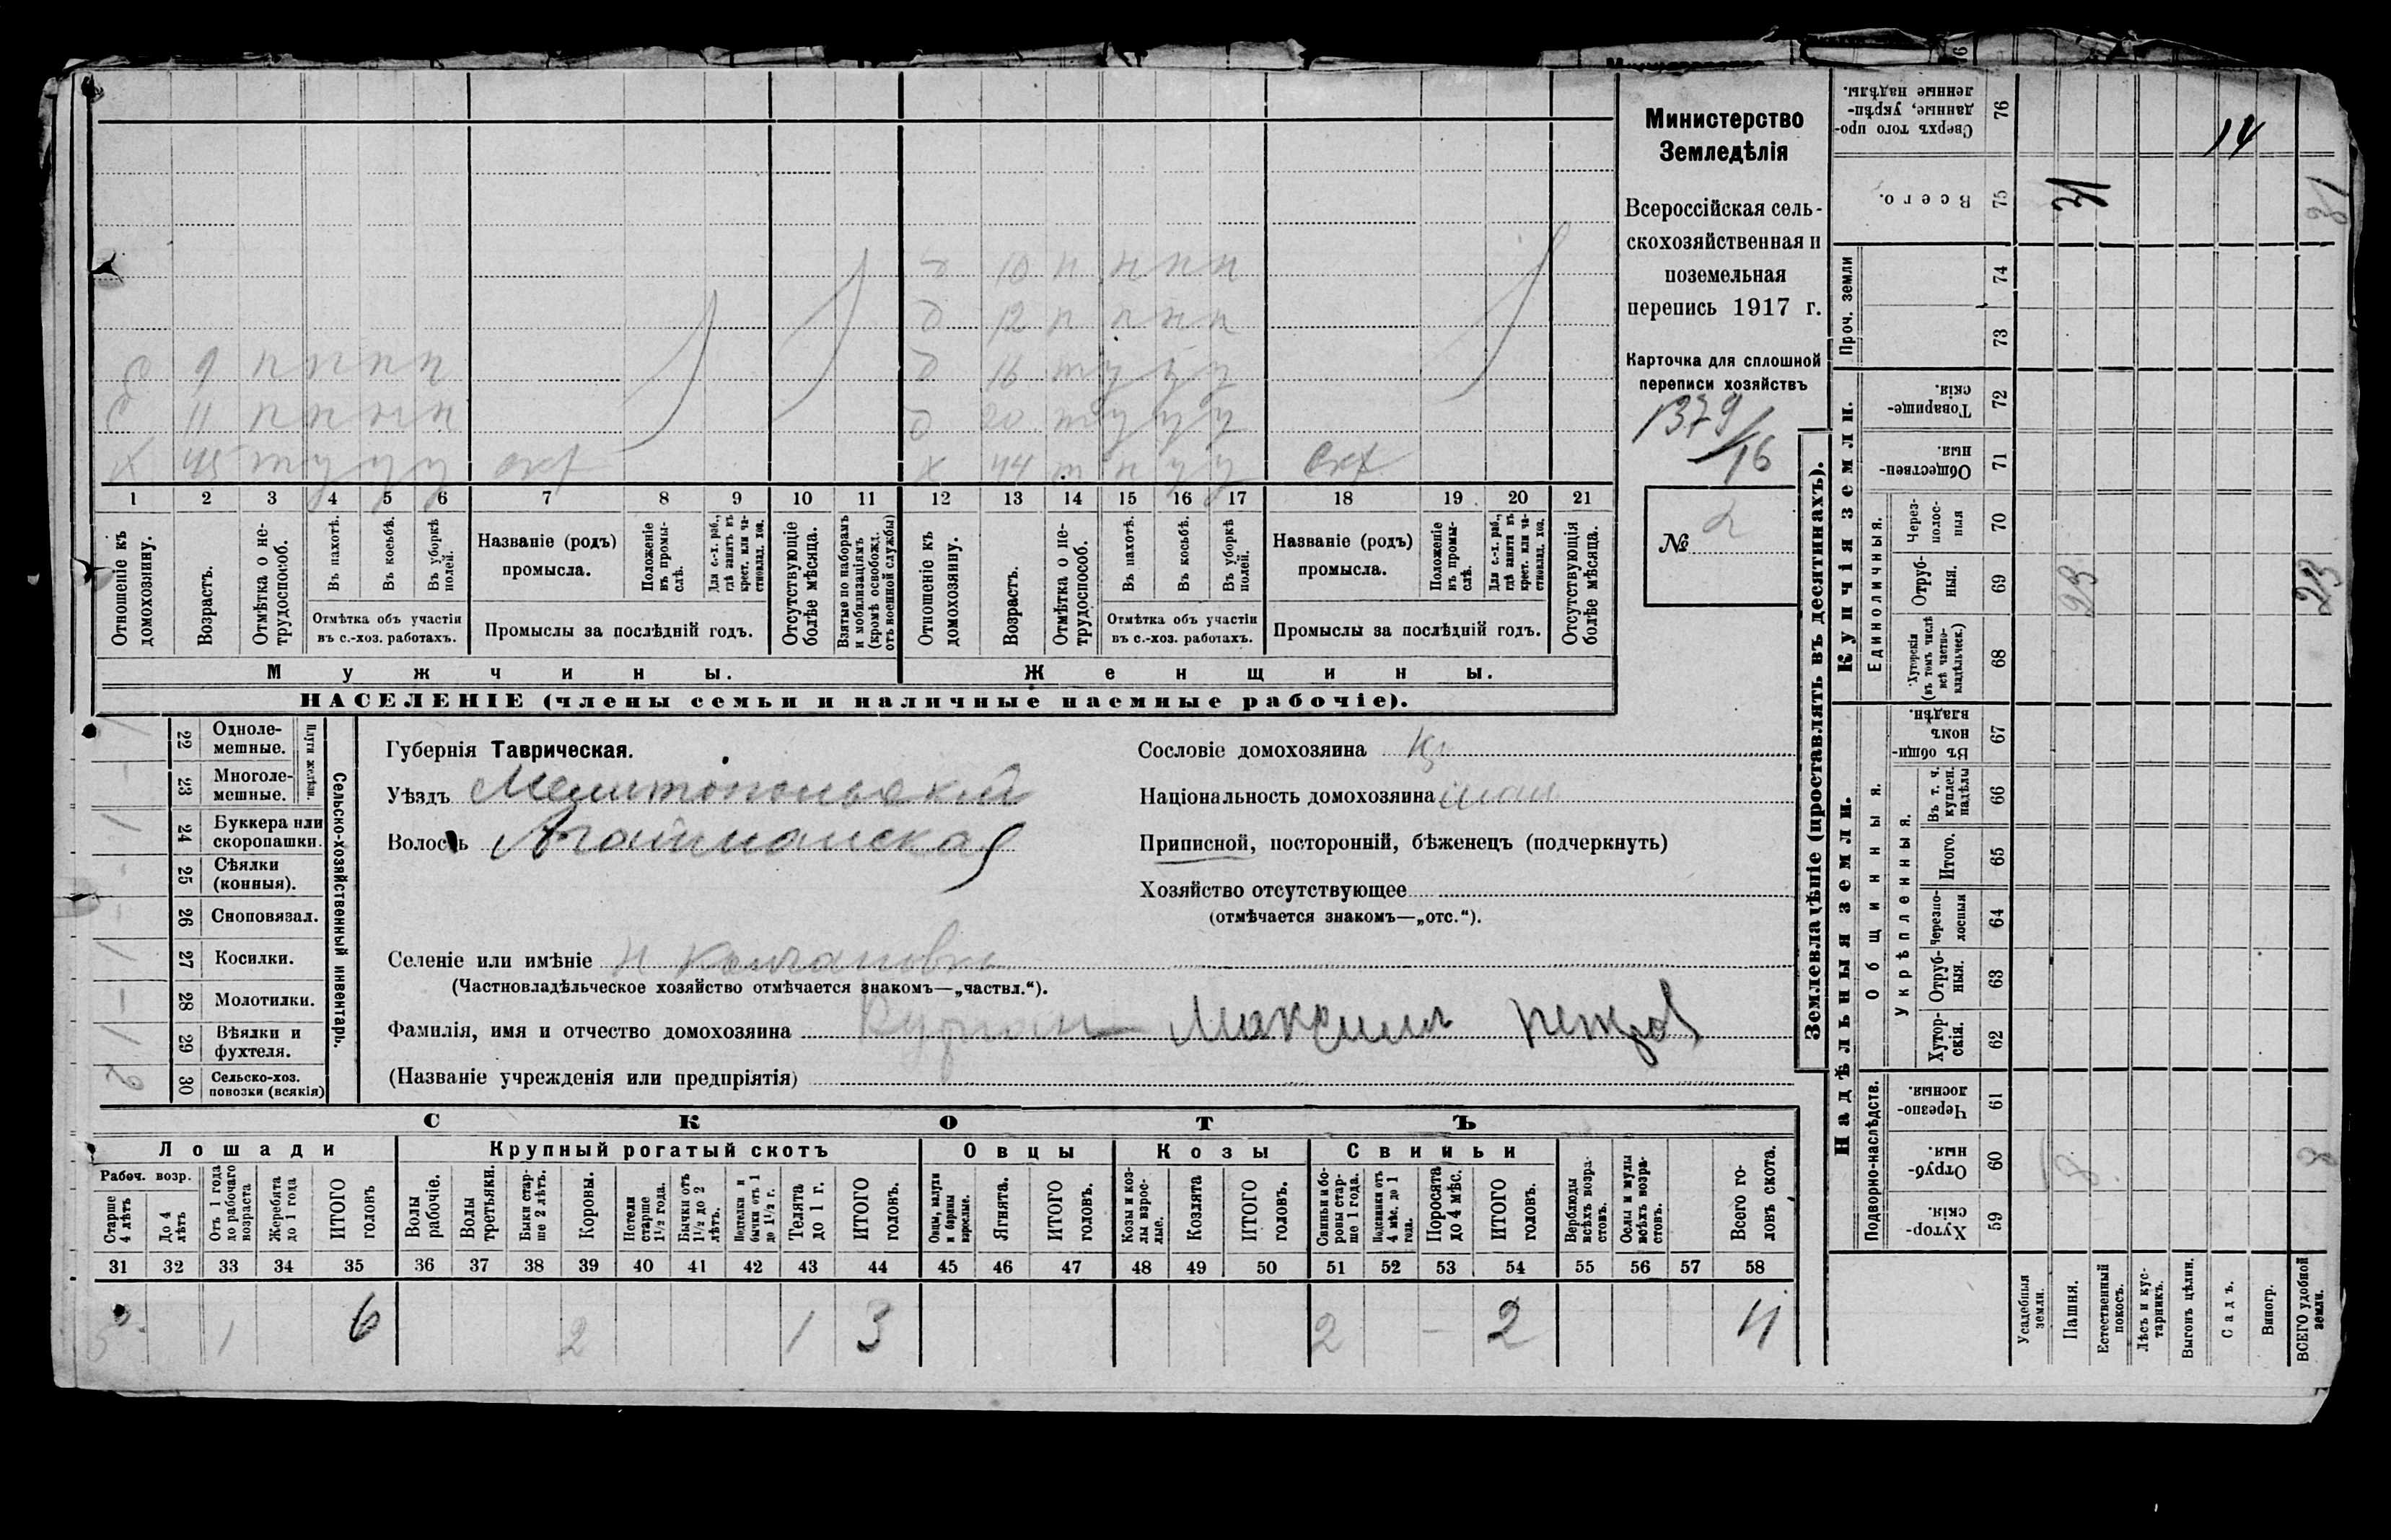 Министерство
Земледѣлія
Всероссійская сель-
скохозяйственная и
поземельная
перепись 1917 г.
Карточка для сплошной
переписи хозяйствъ
1379/16
№ 2
д 10 н н н н
д 12 н н н н
9 н н н н
д 16 т у у у
11 н н н н
д 20 т у у у
х 45 т у у у схх
х 44 т н у у схх
1 2 3 4 5 6 7 8 9 10 11 12 13 14 15 16 17 18 19 20 21
Отношеніе къ домохозяину.
Возрастъ.
Отмѣтка о не-трудоспособ.
Въ пахотѣ.
Въ косьбѣ.
Въ уборкѣ полей.
Отмѣтка объ участіи
въ с.-хоз. работахъ.
Названіе (родъ)
промысла.
Положеніе въ промы-слѣ.
Для с.-х. раб., гдѣ занятъ въ крест. или ча-стновлад. хоз.
Промыслы за послѣдній годъ.
Отсутствующіе болѣе мѣсяца.
Взятые по наборамъ и мобилизаціямъ (кромѣ освобожд. отъ военной службы)
Отношеніе къ домохозяину.
Возрастъ.
Отмѣтка о не-трудоспособ.
Въ пахотѣ.
Въ косьбѣ.
Въ уборкѣ полей.
Отмѣтка объ участіи
въ с.-хоз. работахъ.
Названіе (родъ)
промысла.
Положеніе въ промы-слѣ.
Для с.-х. раб., гдѣ занята въ крест. или ча-стновлад. хоз.
Промыслы за послѣдній годъ.
Отсутствующія болѣе мѣсяца.
Мужчины.
Женщины.
НАСЕЛЕНІЕ (члены семьи и наличные наемные рабочіе).
Сельско-хозяйственный инвентарь.
Плуги желѣзн.
22 Одноле-мешные. 1
23 Многоле-мешные. -
24 Буккера или скоропашки. 1
25 Сѣялки (конныя). -
26 Сноповязал. -
27 Косилки. 1
28 Молотилки. -
29 Вѣялки и фухтеля. 1
30 Сельско-хоз. повозки (всякія) 2
Губернія Таврическая.
Уѣздъ Мелитопольскій
Волость Агайманская
Селеніе или имѣніе
(Частновладѣльческое хозяйство отмѣчается знакомъ—„частвл.“).
Фамилія, имя и отчество домохозяина Максимъ Петров
(Названіе учрежденія или предпріятія)
Сословіе домохозяина кр
Національность домохозяина
Приписной, посторонній, бѣженецъ (подчеркнуть)
Хозяйство отсутствующее
(отмѣчается знакомъ—„отс.“).
СКОТЪ
Лошади
Крупный рогатый скотъ
Овцы
Козы
Свиньи
Рабоч. возр.
Старше 4 лѣтъ
До 4 лѣтъ
Отъ 1 года до рабочаго возраста
Жеребята до 1 года
ИТОГО головъ
Волы рабочіе.
Волы третьяки.
Быки стар-ше 2 лѣтъ.
Коровы.
Нетели старше 1½ года.
Бычки отъ 1½ до 2 лѣтъ.
Подтелки и бычки отъ 1 до 1½ г.
Телята до 1 г.
ИТОГО головъ.
Овцы, валухи и бараны взрослые.
Ягнята.
ИТОГО головъ.
Козы и коз-лы взрос-лые.
Козлята
ИТОГО головъ.
Свиньи и бо-ровы стар-ше 1 года.
Подсвинки отъ 4 мѣс. до 1 года.
Поросята до 4 мѣс.
ИТОГО головъ.
Верблюды всѣхъ возра-стовъ.
Ослы и мулы всѣхъ возра-стовъ.
Всего го-ловъ скота.
31 32 33 34 35 36 37 38 39 40 41 42 43 44 45 46 47 48 49 50 51 52 53 54 55 56 57 58
5 1 6 2 1 3 2 - 2 11
Землевладѣніе (проставлять въ десятинахъ).
Надѣльныя земли.
Купчія земли.
Проч. земли
Подворно-наслѣдств.
Общинныя.
Укрѣпленныя.
Единоличныя.
Сверхъ того про-данные, укрѣп-ленные надѣлы. 76
Всего. 75
74
73
Товарище-скія. 72
Обществен-ныя. 71
Через-полос-ныя 70
Отруб-ныя. 69
Хуторскія (въ томъ числѣ всѣ частно-владѣльческ.) 68
Въ общин-номъ владѣн. 67
Въ т. ч. куплен. надѣлы 66
Итого. 65
Черезпо-лосныя 64
Отруб-ныя. 63
Хутор-скія. 62
Черезпо-лосныя. 61
Отруб-ныя. 60
Хутор-скія. 59
Усадебныя земли.
Пашня. 8 23 31
Естественный покосъ.
Лѣсъ и кус-тарникъ.
Выгонъ цѣлин.
Садъ. 14
Виногр.
ВСЕГО удобной земли. 8 23 31